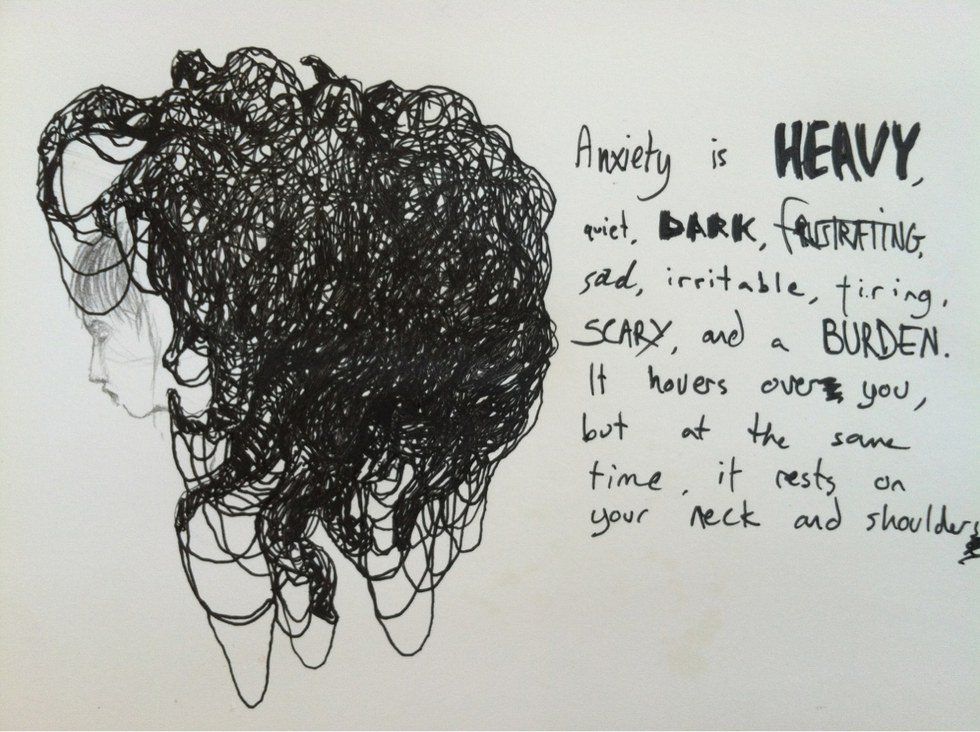 Anxiety is HEAVY,
quiet, DARK, fRUSTRATING,
sad, irritable, tiring,
SCARY, and a BURDEN.
It hovers over you,
but at the same
time, it rests on
your neck and shoulders